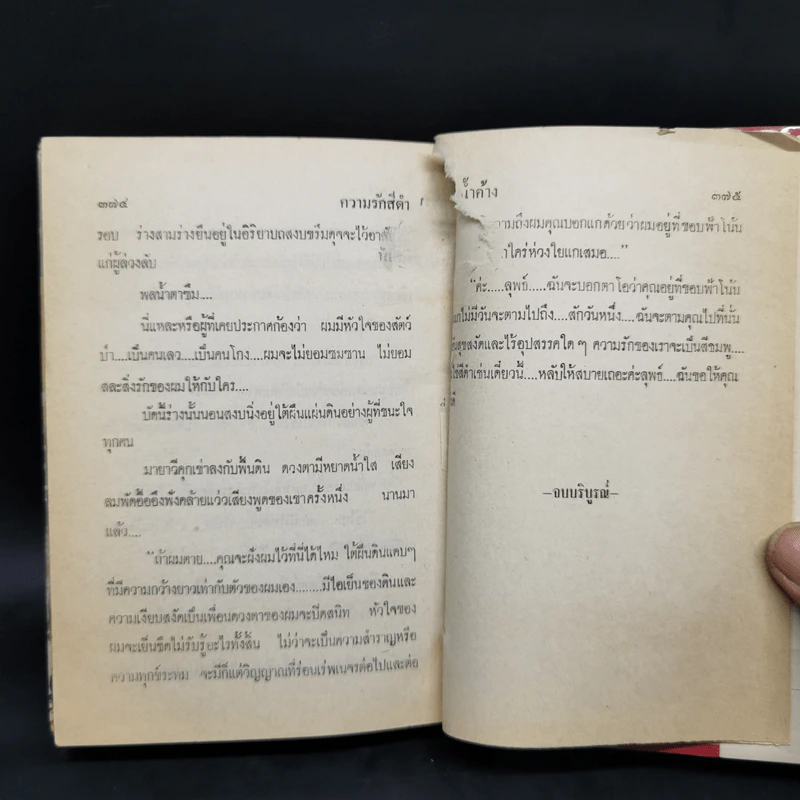 ๓๗๔ ความรักสีดำ
รอบ ร่างสามร่างยืนอยู่ในอิริยาบถสงบขรึมดุจจะไว้อาลั
แก่ผู้ล่วงลับ
พลน้ำตาซึม....
นี่แหละหรือผู้ที่เคยประกาศก้องว่า ผมมีหัวใจของสัตว์
ป่า....เป็นคนเลว....เป็นคนโกง....ผมจะไม่ยอมซมซาน ไม่ยอม
สละสิ่งรักของผมให้กับใคร....
บัดนี้ร่างนั้นนอนสงบนิ่งอยู่ใต้ผืนแผ่นดินอย่างผู้ที่ชนะใจ
ทุกคน
มายาวีคุกเข่าลงกับพื้นดิน ดวงตามีหยาดน้ำใส เสียง
ลมพัดอื้ออึงฟังคล้ายแว่วเสียงพูดของเขาครั้งหนึ่ง นานมา
แล้ว....
"ถ้าผมตาย....คุณจะฝังผมไว้ที่นี่ได้ไหม ใต้ผืนดินแคบๆ
ที่มีความกว้างยาวเท่ากับตัวของผมเอง....มีไอเย็นของดินและ
ความเงียบสงัดเป็นเพื่อนดวงตาของผมจะปิดสนิท หัวใจของ
ผมจะเย็นชืดไม่รับรู้อะไรทั้งสิ้น ไม่ว่าจะเป็นความสำราญหรือ
ความทุกข์ระทม จะมีก็แต่วิญญาณที่ร่อนเร่พเนจรต่อไปและต่อ
น้ำค้าง ๓๗๕
ถามถึงผมคุณบอกแกด้วยว่าผมอยู่ที่ขอบฟ้าโน้น
ใคร่ห่วงใยแกเสมอ...."
"ค่ะ....สุพธ์....ฉันจะบอกตาโอว่าคุณอยู่ที่ขอบฟ้าโน้น
แกไม่มีวันจะตามไปถึง....สักวันหนึ่ง....ฉันจะตามคุณไปที่นั่น
สุขสงัดและไร้อุปสรรคใดๆ ความรักของเราจะเป็นสีชมพู....
ใช่สีดำเช่นเดี๋ยวนี้....หลับให้สบายเถอะค่ะสุพธ์....ฉันขอให้คุณ
—จบบริบูรณ์—